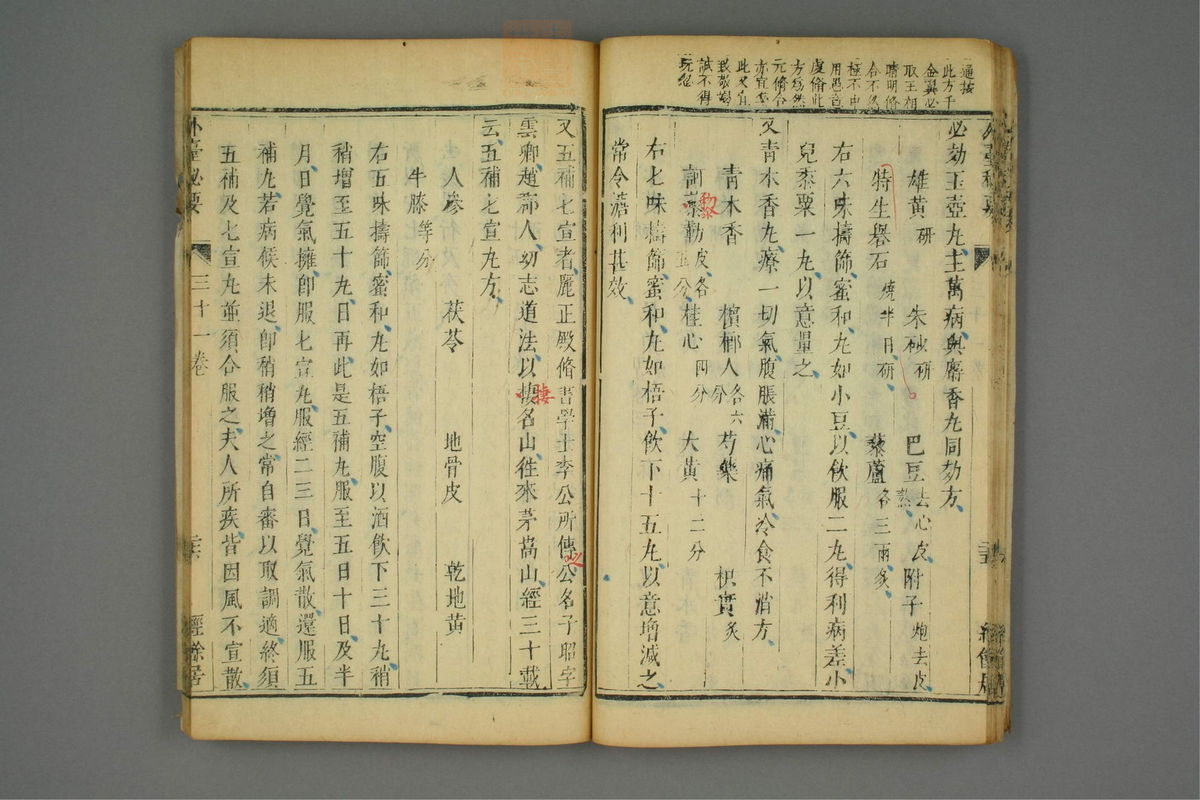 通按
此方千
金翼必
取王相
晴明脩
合不爾
極不中
用邑言
虔脩此
方為然
元脩合
亦宜爾
此又宜
致敬焉
誠不得
玩忽
必効玉壺丸主萬病與麝香丸同効方
雄黃研 朱砂研 巴豆去心皮熬 附子炮去皮
特生礜石燒半日研 藜蘆各三兩炙
右六味擣篩蜜和丸如小豆以飲服二丸得利病差小
兒黍粟一丸以意量之
又青木香丸療一切氣腹脹滿心痛氣冷食不消方
青木香 檳榔人各六分 芍藥 枳實炙
訶黎勒皮各五分 桂心四分 大黃十二分
右七味擣篩蜜和丸如梧子飲下十五丸以意增減之
常令溏利甚效
又五補七宣者麗正殿脩書學士李公所傳公名子昭字
雲卿趙郡人幼志道法以棲名山徃來茅嵩山經三十載
云五補七宣丸方
人參 茯苓 地骨皮 乾地黃
牛膝等分
右五味擣篩蜜和丸如梧子空腹以酒飲下三十丸稍
稍增至五十丸日再此是五補丸服至五日十日及半
月日覺氣擁卽服七宣丸服經二三日覺氣散還服五
補丸若病候未退卽稍稍增之常自審以取調適終須
五補及七宣丸並須合服之夫人所疾皆因風不宣散
外臺祕要 三十一卷 二六 經餘居